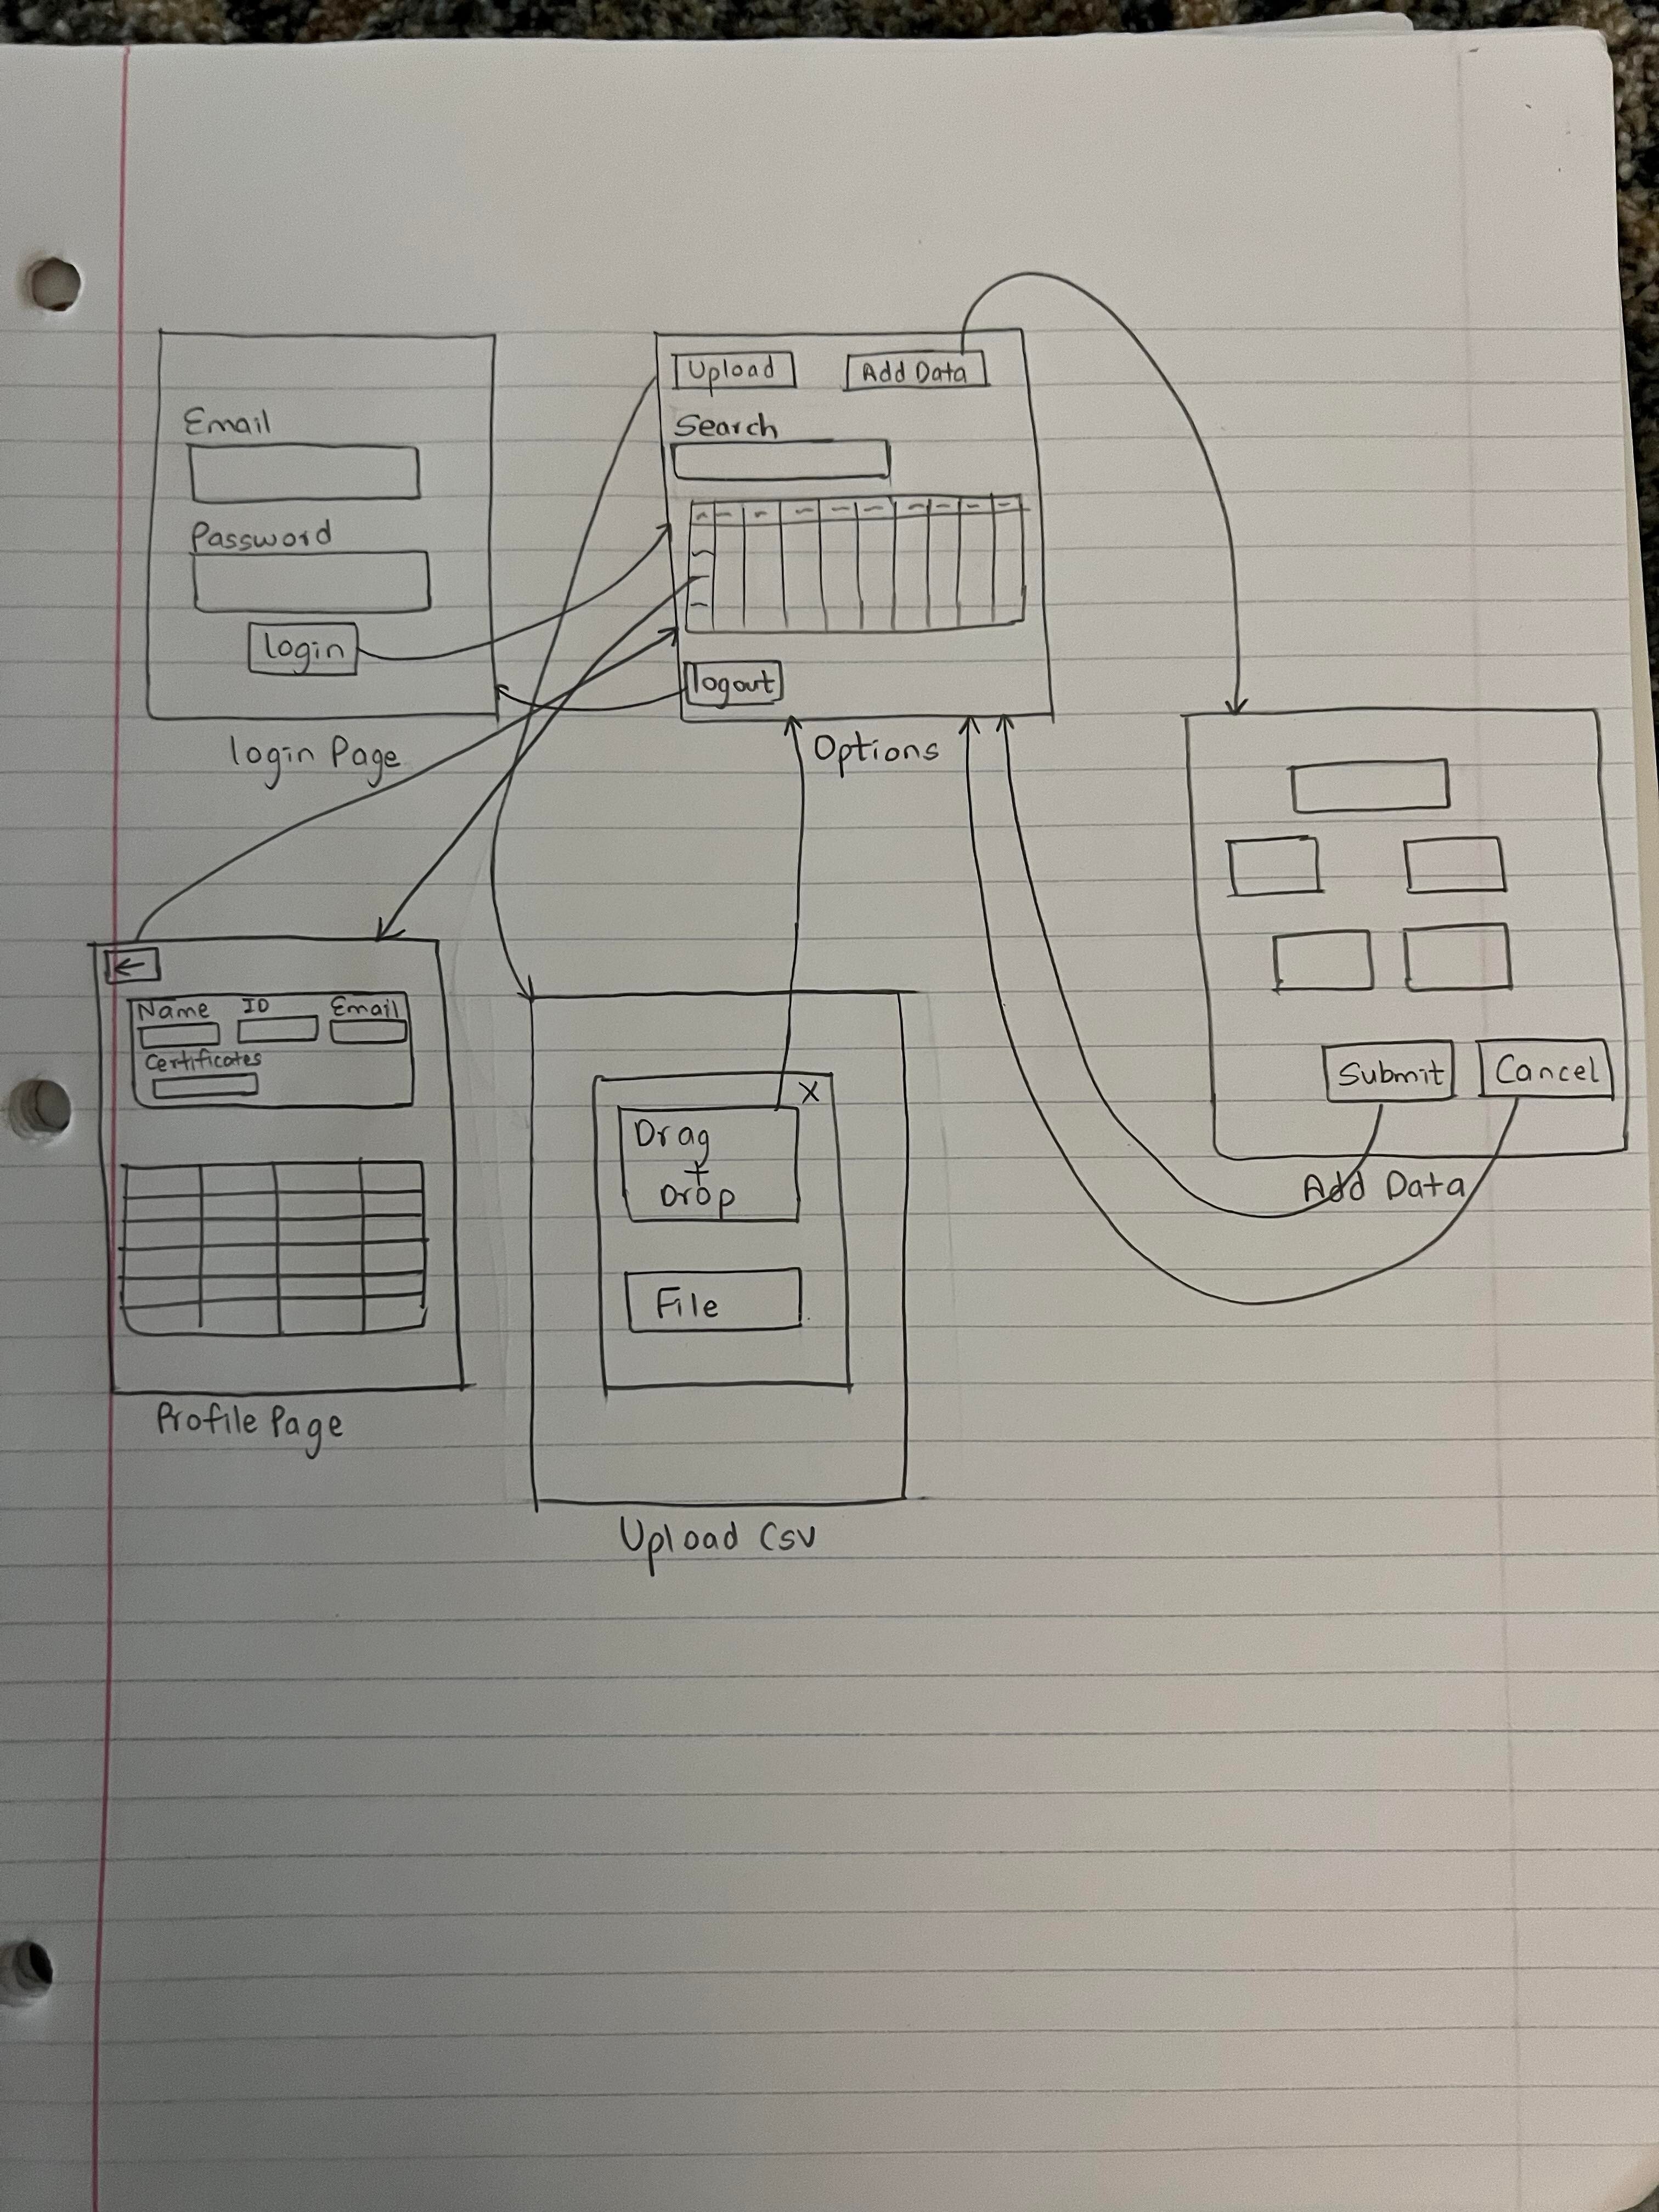 Email
Password
login
login Page
Upload Add Data
Search
logout
Options
Submit Cancel
Add Data
←
Name ID Email
Certificates
Profile Page
X
Drag
+
Drop
File
Upload Csv